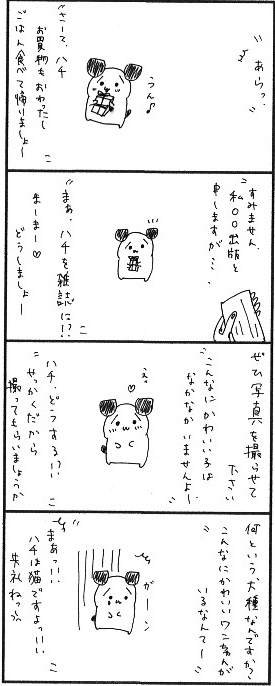 あらっ、
うん♪
さーて、ハチ
お買物もおわったし
ごはん食べて帰りましょー
すみません、
私〇〇出版と
申しますが…、
まぁ、ハチを雑誌に!?
まーまー♡
どうしましょー
ぜひ写真を撮らせて
下さい
こんなにかわいい子は
なかなかいませんよー
えっ
ハチ、どうする!?
せっかくだから
撮ってもらいましょうか
何という犬種なんですか?
こんなにかわいいワンちゃんが
いるなんてー
ガーン
まぁっ!!
ハチは猫ですよっ!!
失礼ねっ